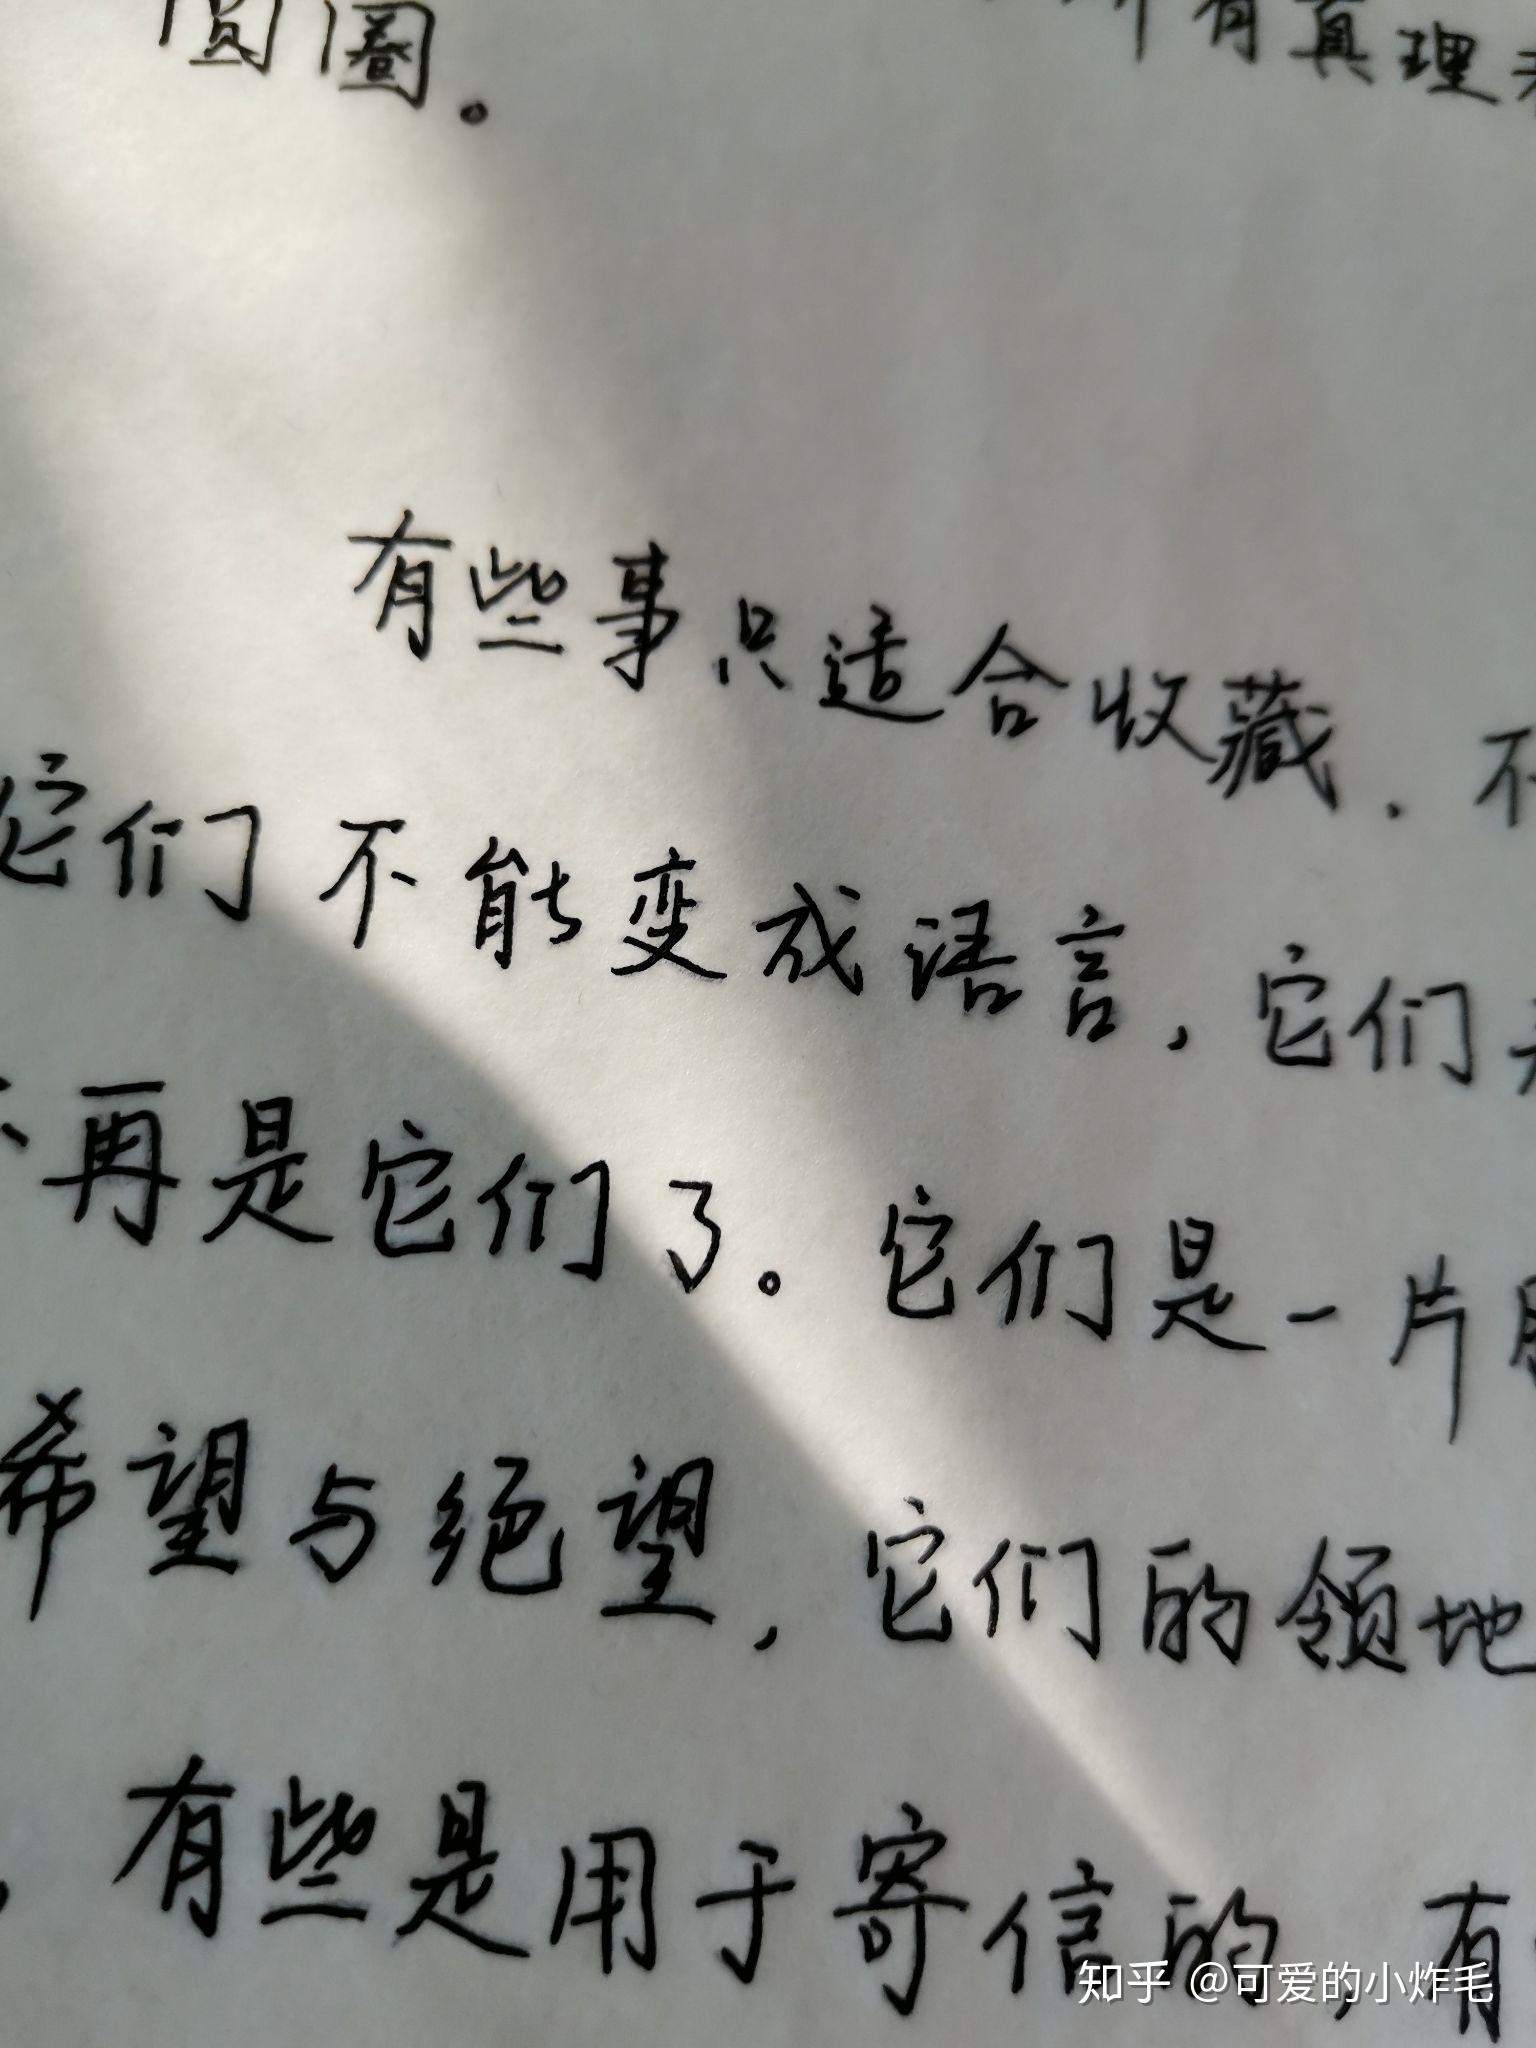 圆圈。
有真理
有些事只适合收藏，不
它们不能变成语言，它们
不再是它们了。它们是一片
希望与绝望，它们的领地
，有些是用于寄信的，有
知乎 @可爱的小炸毛